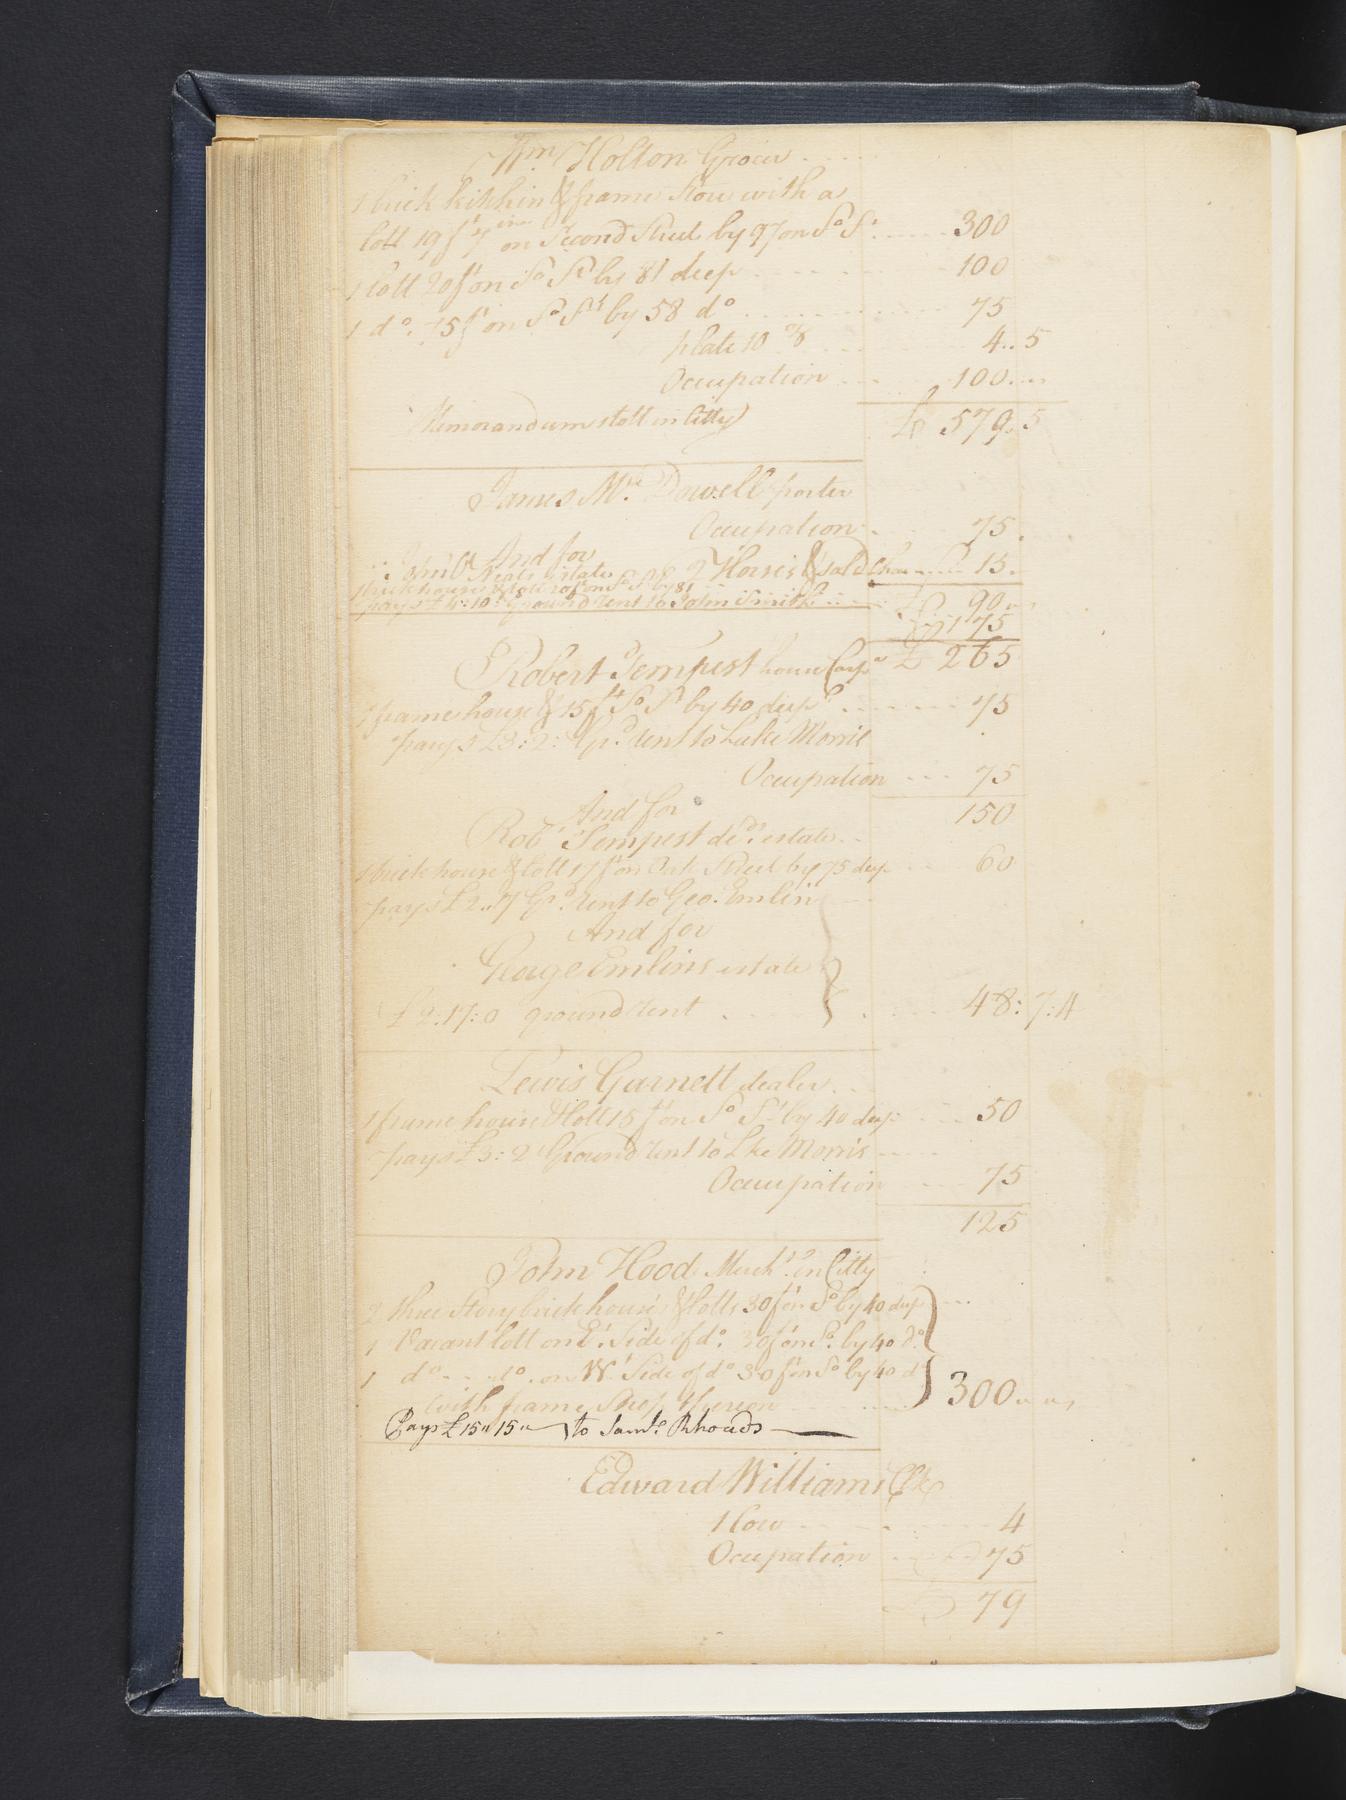 Wm. Holton Grocer ....
1 brick kitchin & frame Stow with a
lott 19 ft 7 in on Second Street by 97 on So. St. ...... 300
1 lott 20 ft on So St by 81 deep ...... 100
1 do. 15 ft on So St by 58 do ...... 75
plate 10 oz ...... 4..5
Occupation ...... 100..
Memorandum 1 lott in Citty £ 579.5
James Mc. Dowell porter
Occupation ...... 75.
And for 2 Horses & sold Chair ...... 15.
Neals estate
1 brick house & lott 20 ft on So St by 81
pays £4:10: Ground rent to John Smith ...... £ 90
175
£ 265
Robert Tempest house Carpr
1 frame house & 15 ft So St by 40 deep ...... 75
pays £3:2: Grd. rent to Luke Morris
Occupation ...... 75
150
And for
Robt. Tempest decd. estate ..
1 brick house & lott 17 ft on Oak Street by 75 deep ...... 60
pays £2..7 Grd. rent to Geo. Emlin
And for
George Emlins estate
£2:17:0 ground rent ...... 48:7:4
Lewis Garnett dealer ..
1 frame house & lott 15 ft on So St by 40 deep ...... 50
pays £3:2 Ground rent to Lke Morris ....
Occupation ...... 75
125
John Hood Mercht. in Citty
2 three Story brick houses & lotts 30 ft on So by 40 deep ...
1 Vacant lott on Et. Side of do. 20 ft on So. by 40 do.
1 do ... do. on Wt Side of do 30 ft on So by 40 do
with frame Shop thereon ...... 300
Pays £15"15" to Saml. Rhoads
Edward Williams Clk
1 Cow ...... 4
Occupation ...... 75
79